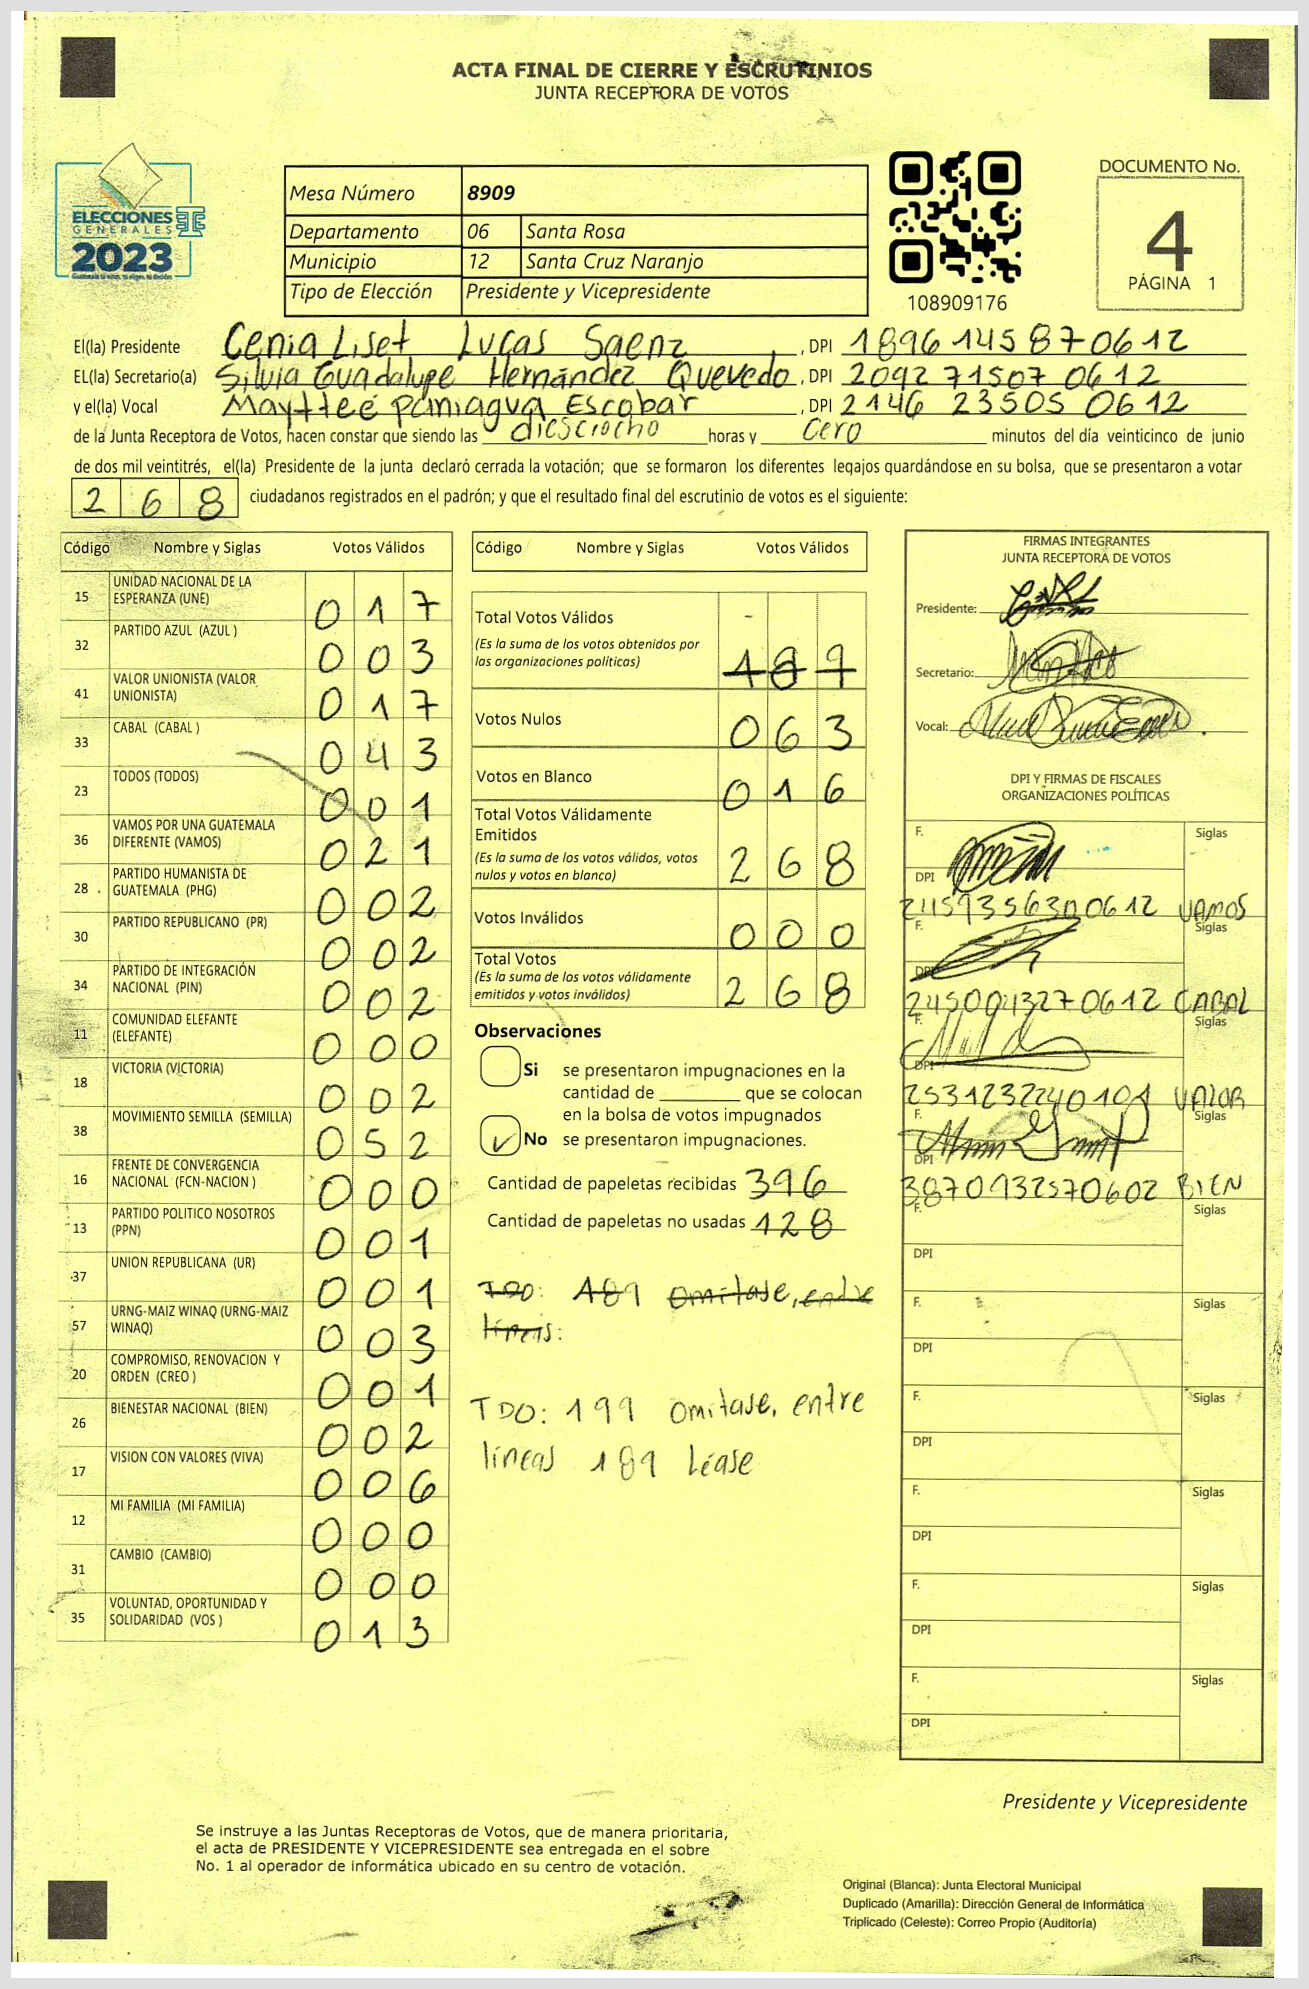 ACTA FINAL DE CIERRE Y ESCRUTINIOS
JUNTA RECEPTORA DE VOTOS
ELECCIONES
GENERALES
2023
Mesa Número 8909
Departamento 06 Santa Rosa
Municipio 12 Santa Cruz Naranjo
Tipo de Elección Presidente y Vicepresidente
108909176
DOCUMENTO No.
4
PÁGINA 1
El(la) Presidente Cenia Liset Lucas Saenz, DPI 1896 14587 0612
EL(la) Secretario(a) Silvia Guadalupe Hernández Quevedo, DPI 2092 71507 0612
y el(la) Vocal Maytteé Paniagua Escobar, DPI 2146 23505 0612
de la Junta Receptora de Votos, hacen constar que siendo las diesciocho horas y cero minutos del día veinticinco de junio
de dos mil veintitrés, el(la) Presidente de la junta declaró cerrada la votación; que se formaron los diferentes legajos guardándose en su bolsa, que se presentaron a votar
268 ciudadanos registrados en el padrón; y que el resultado final del escrutinio de votos es el siguiente:
Código Nombre y Siglas Votos Válidos
15 UNIDAD NACIONAL DE LA ESPERANZA (UNE) 017
32 PARTIDO AZUL (AZUL ) 003
41 VALOR UNIONISTA (VALOR UNIONISTA) 017
33 CABAL (CABAL ) 043
23 TODOS (TODOS) 001
36 VAMOS POR UNA GUATEMALA DIFERENTE (VAMOS) 021
28 PARTIDO HUMANISTA DE GUATEMALA (PHG) 002
30 PARTIDO REPUBLICANO (PR) 002
34 PARTIDO DE INTEGRACIÓN NACIONAL (PIN) 002
11 COMUNIDAD ELEFANTE (ELEFANTE) 000
18 VICTORIA (VICTORIA) 002
38 MOVIMIENTO SEMILLA (SEMILLA) 052
16 FRENTE DE CONVERGENCIA NACIONAL (FCN-NACION ) 000
13 PARTIDO POLITICO NOSOTROS (PPN) 001
37 UNION REPUBLICANA (UR) 001
57 URNG-MAIZ WINAQ (URNG-MAIZ WINAQ) 003
20 COMPROMISO, RENOVACION Y ORDEN (CREO ) 001
26 BIENESTAR NACIONAL (BIEN) 002
17 VISION CON VALORES (VIVA) 006
12 MI FAMILIA (MI FAMILIA) 000
31 CAMBIO (CAMBIO) 000
35 VOLUNTAD, OPORTUNIDAD Y SOLIDARIDAD (VOS ) 013
Código Nombre y Siglas Votos Válidos
Total Votos Válidos
(Es la suma de los votos obtenidos por
las organizaciones políticas)
Votos Nulos 063
Votos en Blanco 016
Total Votos Válidamente
Emitidos
(Es la suma de los votos válidos, votos
nulos y votos en blanco) 268
Votos Inválidos 000
Total Votos
(Es la suma de los votos válidamente
emitidos y votos inválidos) 268
Observaciones
Si se presentaron impugnaciones en la
cantidad de ________ que se colocan
en la bolsa de votos impugnados
No se presentaron impugnaciones.
Cantidad de papeletas recibidas 396
Cantidad de papeletas no usadas 128
TDO: 189 Omitase, entre
líneas:
TDO: 199 Omitase, entre
líneas 189 Léase
FIRMAS INTEGRANTES
JUNTA RECEPTORA DE VOTOS
Presidente:
Secretario:
Vocal:
DPI Y FIRMAS DE FISCALES
ORGANIZACIONES POLÍTICAS
F. Siglas
DPI
VAMOS
F. Siglas
DPI
2450043270612 CABAL
F. Siglas
DPI
2531232240101 VALOR
F. Siglas
DPI
3870132570602 BIEN
F. Siglas
DPI
F. Siglas
DPI
F. Siglas
DPI
F. Siglas
DPI
F. Siglas
DPI
F. Siglas
DPI
Presidente y Vicepresidente
Se instruye a las Juntas Receptoras de Votos, que de manera prioritaria,
el acta de PRESIDENTE Y VICEPRESIDENTE sea entregada en el sobre
No. 1 al operador de informática ubicado en su centro de votación.
Original (Blanca): Junta Electoral Municipal
Duplicado (Amarilla): Dirección General de Informática
Triplicado (Celeste): Correo Propio (Auditoría)